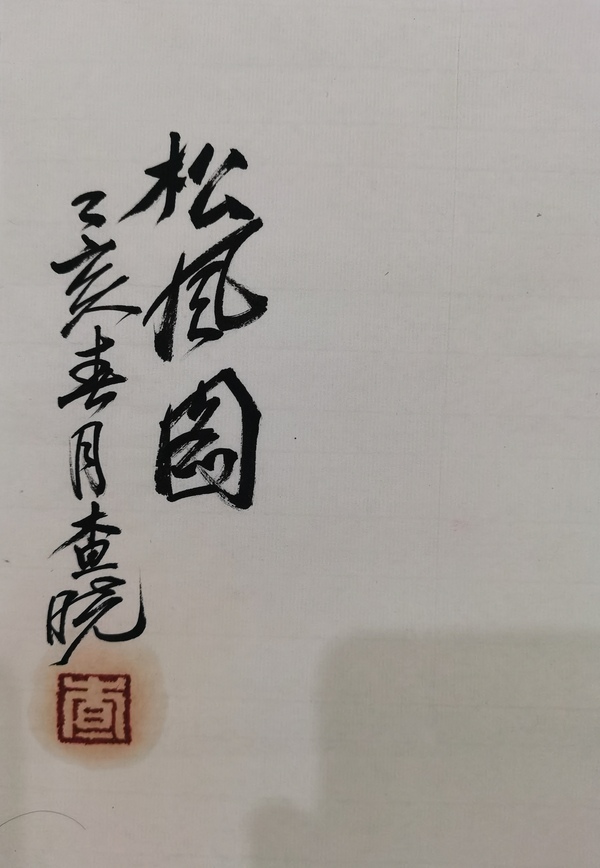 松风图
乙亥春月查晓
查